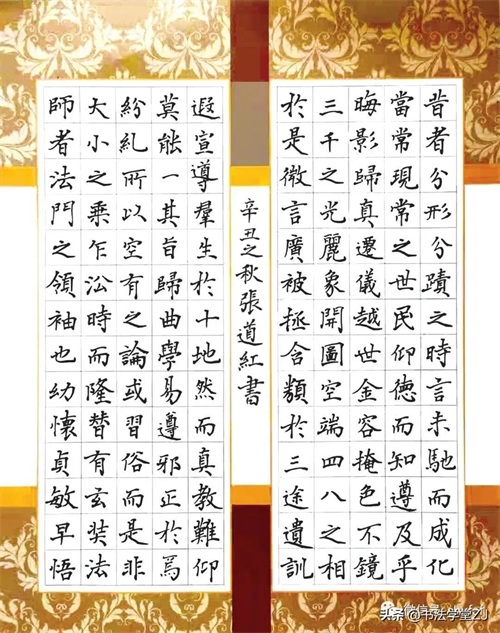 昔者分形分蹟之時言未馳而成化
當常現常之世民仰德而知遵及乎
晦影歸真遷儀越世金容掩色不鏡
三千之光麗象開圖空端四八之相
於是微言廣被拯含類於三途遺訓
遐宣導羣生於十地然而真教難仰
莫能一其旨歸曲學易遵邪正於焉
紛糺所以空有之論或習俗而是非
大小之乘乍沿時而隆替有玄奘法
師者法門之領袖也幼懷貞敏早悟
辛丑之秋張道紅書
头条 @书法学堂ZJ